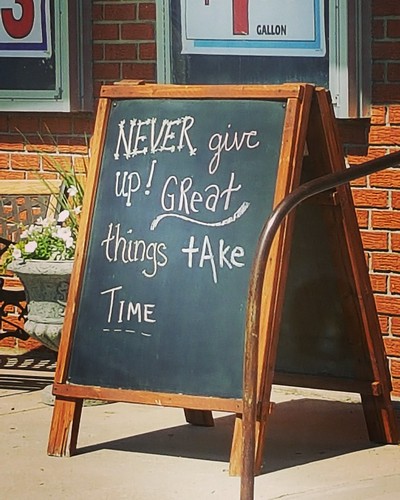 3
1
GALLON
NEVER give
up! GReat
things tAke
TIME